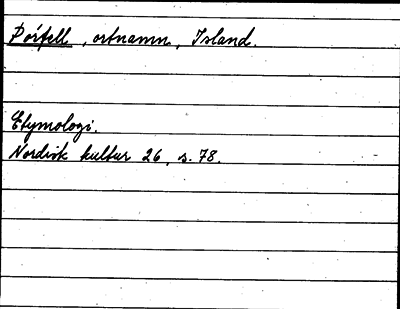 Þórfell, ortnamn, Island.
Etymologi.
Nordisk kultur 26, s. 78.